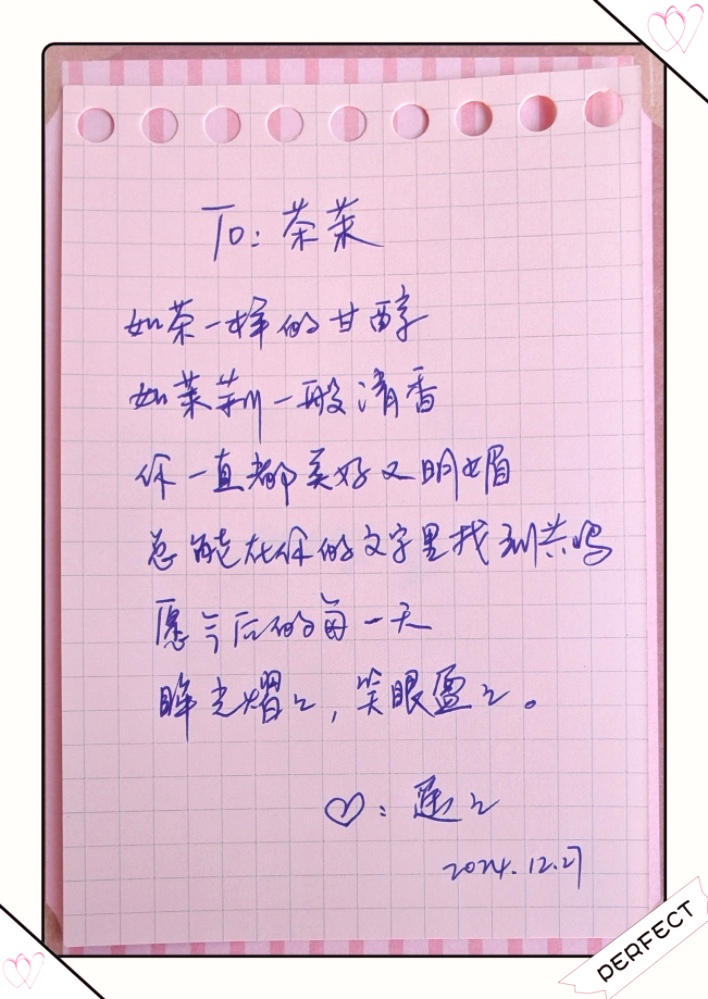 PERFECT
To: 茶茉
如茶一样的甘醇
如茉莉一般清香
你一直都美好又明媚
总能在你的文字里找到共鸣
愿今后的每一天
眸光熠々,笑眼盈々。
♡: 遥々
2024.12.27
PERFECT